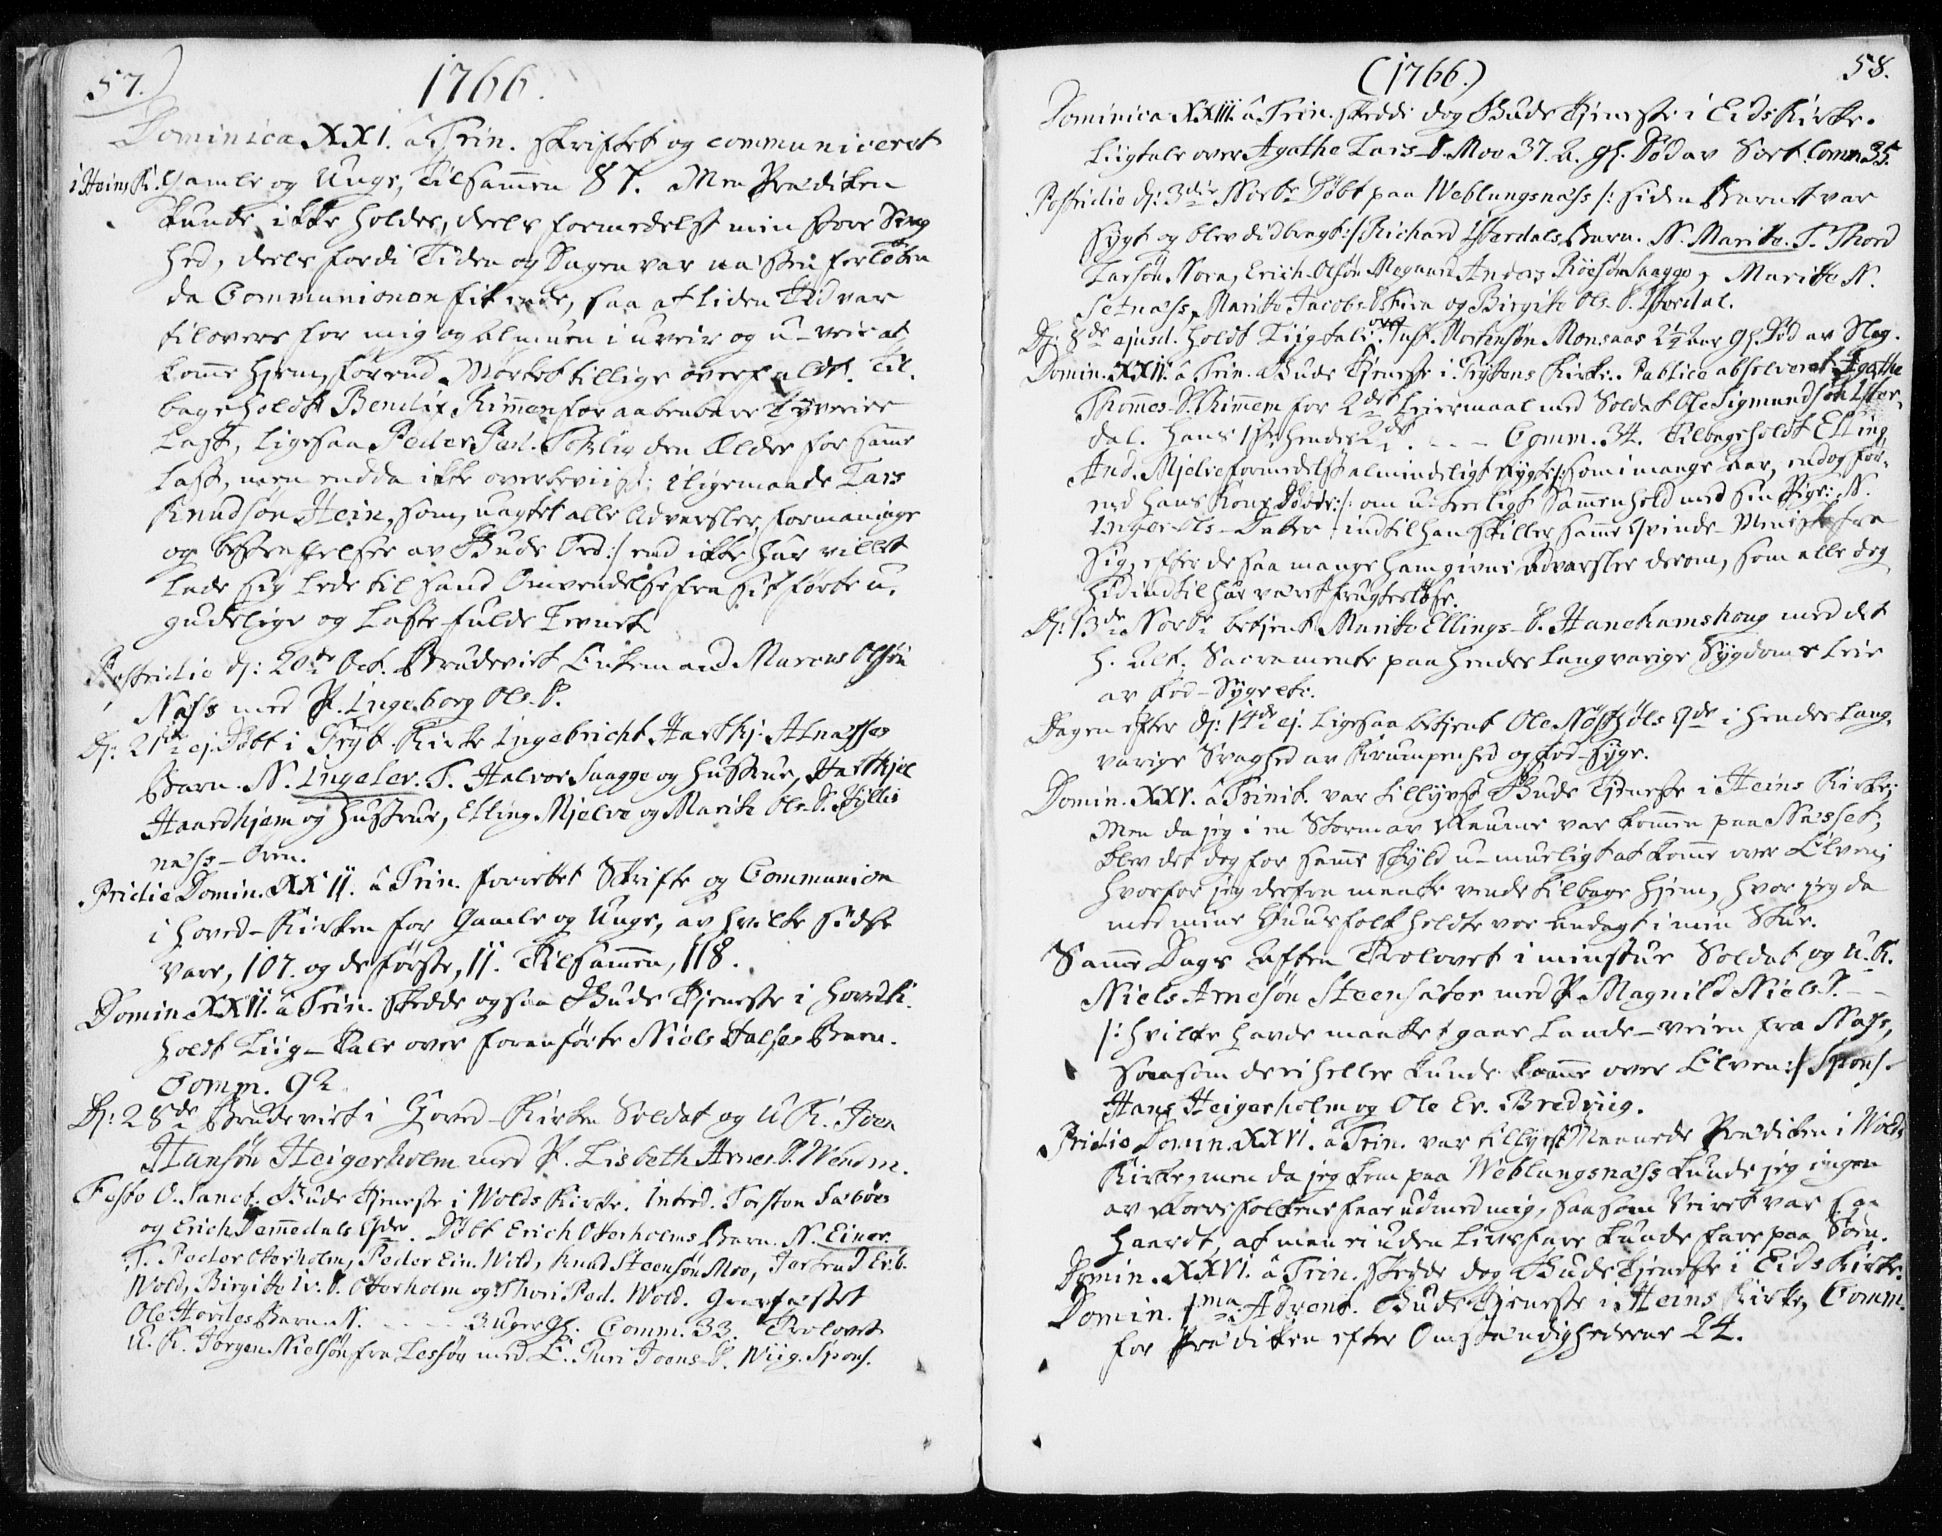 57.)
1766.
Dominica XXI. â Trin. skriftet og communiceret
i Heins K. Gamle og Unge, Tilsammen 87. Men Prædiken
kunde ikke holdes, deels formedelst min store Svag
hed, deels fordi Tiden og Dagen var næsten forløben
da Communionen fik ende, saa at liden Tid var
tilovers for mig og Almuen i uveir og u-veie at
komme hjem, förend Mörket tillige overfaldt. Til
bageholdt Bendix Rimmen for aabenbare Tyverier
Last, ligesaa Peder Ped. Soklis den Ældre for samme
Last, men endda ikke overbeviist: iligemaade Lars
Knudsön Hein, som, uagtet alle Advarsler, formaninge
og bestraffelser av Guds Ord:/ end ikke har villet
lade sig lede til sand Omvendelse fra sit förte u-
gudelige og Lastefulde Levnet.
Postridie d: 20de Oct. Brudeviet Enkemand Marcus Olsön
Næss med P. Ingeborg Ols. D.
D: 21de ej. Döbt i Gryt. Kirke Ingebricht Hartkj. Alnæsses
Barn. N. Ingelev. T. Halvor Saagge og Hustrue, Hartkjel
Haardhjem og Hustrue, Elling Mjelve og Marite Ols. D.
næss-Ören.
Pridie Domin. XXII. â Trin. forrettet Skrifte og Communion
i Hoved-Kirken for Gamle og Unge, av hvilke sidste
vare, 107. og de förste, 11. Tilsammen, 118.
Domin. XXII. â Trin. skedde ogsaa Guds Tjeneste i Hovedk.
holdt Liig-Tale over foranförte Niels Halses Barn.
Comm. 92.
D: 28de Brudeviet i Hoved-Kirken Soldat og U. K. Joen
Hansön Heigerholm med P. Lisbeth Arnes. D. Wenm.
Festo O. Sanct. Guds Tjeneste i Wolds Kirke. Introd. Torsten Sæbøes
og Erich Dæmedals Qvder. Döbt Erich Oterholms Barn. N. Einer.
T. Peder Oterholm, Peder Ein. Wold, Knud Steensön Moe, Jartrud Er. D.
Wold, Birgitte Iv. D. Oterholm og Thori Ped. Wold. Gravfæstet
Ole Hovdes Barn. N. - - - - 3 Uger gl. Comm. 33. Trolovet
U. K. Jörgen Nielsön fra Lessöy med E. Guri Joens D. Wiig. Spons.
(1766.)
58.
Dominica XXIII. â Trin. skedde dog Guds Tjeneste i Eids Kirke.
Liigtale over Agathe Lars-D. Moe 37. A. gl. Död av Sot. Comm. 35.
Postridie d: 3die Novbr Döbt paa Weblungsnæss /: siden Barnet var
sygt og blev didbragt:/ Richard Isterdals Barn. N. Marite. T. Thord
Larsön Sora, Erich Olsön Megaard, Anders Röesön Saagge, Maritte N.
Setnæss, Marite Jacobs D. Sora og Birgite Ols. D. Isterdal.
D: 8de ejusd. holdt Liigtale over Inf. Mortensön Monsaas 2½ Aar gl. Död av Slag.
Domin. XXIV. â Trin. Guds Tjeneste i Grytens Kirke. Publice absolveret Agathe
Thommes D. Rimmem for 2det Leiermaal med Soldat Ole Sigmundsön Ister-
dal. hans 1ste hendes 2det. - - - Comm. 34. Tilbageholdt Elling
And. Mjelve formedelst almindeligt Rygte /: som i mange Aar, endog för-
end hans Kones Död:/ om u-tærligt Sammenhold med sin Pige: N.
Inger Ols-Datter indtil han skiller samme Qvinde-Menneske fra
sig, efter de saa mange ham givne Advarsler derom, som alle dog
hidindtil har været frugtesløse.
D: 13de Novbr betjent Marite Ellings-D. Hanekamshoug med det
h. Alt. Sacramente paa hendes langvarige Sygdoms Leie
av Fod-Syge etc.
Dagen efter d: 14de ej. ligesaa betjent Ole Nösthöls Qde i hendes lang-
varige Svaghed av Krumpenhed og Fod-syge.
Domin. XXV. â Trinit. var tillyst Guds Tjeneste i Heins Kirke;
Men da jeg i en Storm av Raumæ var kommen paa Næsset,
blev det dog for samme skyld u-mueligt at komme over Elven;
hvorfor jeg derfra maatte vende tilbage hjem, hvor jeg da
med mine Huusfolk holdte vor Andagt i min Stue.
Samme Dags Aften Trolovet i min stue Soldat og U. K.
Niels Arnesön Steensæter med P. Magnild Niels D. - -
/: hvilke havde maattet gaae Lande-veien fra Næss,
saasom de ei heller kunde komme over Elven:/ Spons.
Hans Heigerholm og Ole Er. Bredviig.
Pridie Domin. XXVI. â Trin. var tillyst Maaneds Prædiken i Wolds
Kirke; men da jeg kom paa Weblungsnæss kunde jeg ingen
av Roersfolkene faae ud med mig, saasom Veiret var saa
haardt, at man ei uden Livsfare kunde fare paa Söen.
Domin. XXVI. â Trin. skedde dog Guds Tjeneste i Eids Kirke.
Domin. 1ma Advent. Guds Tjeneste i Heins Kirke, Comm.
for Prædiken efter Omstændighederne 24.